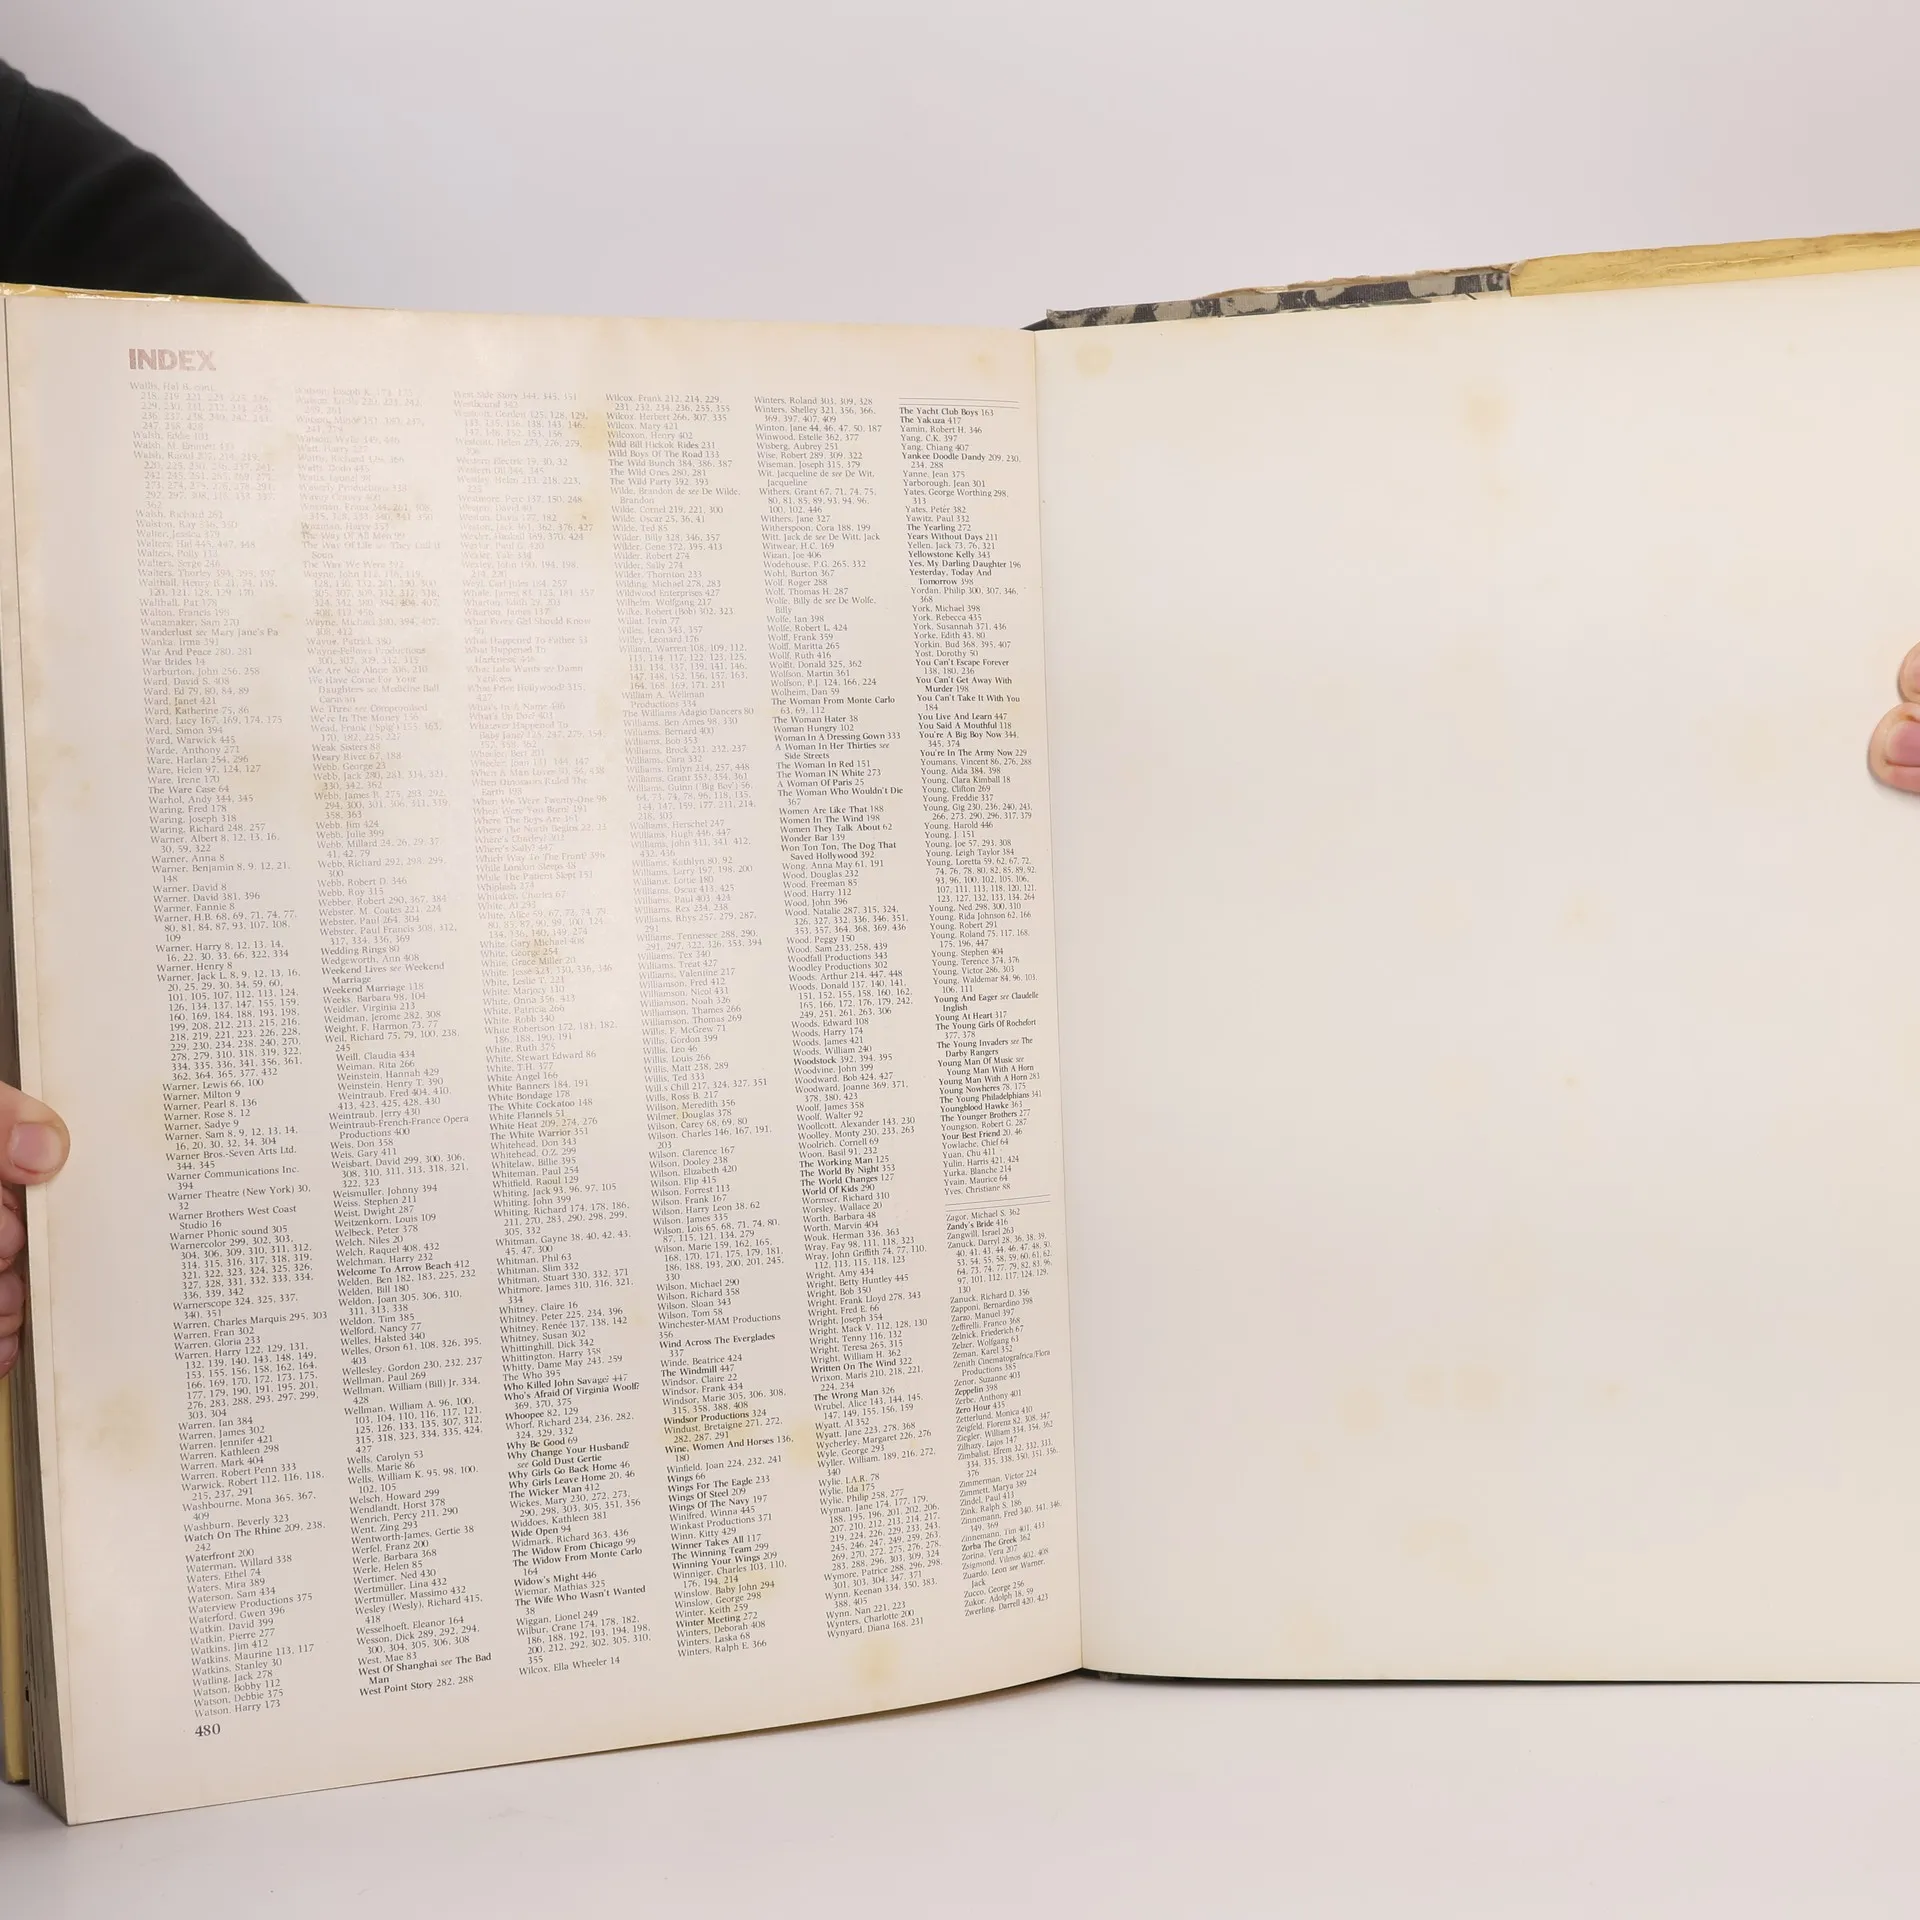 INDEX
Wallis, Hal B. cont.
Walsh, Richard 281
Walters, Serge 246
Walthall, Pat 178
Walton, Francis 198
Wanamaker, Sam 270
Wanderlust see Mary Jane's Pa
Wanka, Irma 391
War And Peace 280, 281
War Brides 14
Warburton, John 256, 258
Ward, David S. 408
Ward, Ed 79, 80, 84, 89
Ward, Janet 421
Ward, Katherine 75, 86
Ward, Lucy 167, 169, 174, 175
Ward, Simon 394
Ward, Warwick 445
Warde, Anthony 271
Ware, Harlan 254, 296
Ware, Helen 97, 124, 127
Ware, Irene 170
The Ware Case 64
Warhol, Andy 344, 345
Waring, Fred 178
Waring, Joseph 318
Waring, Richard 248, 257
Warner, Albert 8, 12, 13, 16,
30, 59, 322
Warner, Anna 8
Warner, Benjamin 8, 9, 12, 21,
148
Warner, David 8
Warner, David 381, 396
Warner, Fannie 8
Warner, H.B. 68, 69, 71, 74, 77,
80, 81, 84, 87, 93, 107, 108,
109
Warner, Harry 8, 12, 13, 14,
16, 22, 30, 33, 66, 322, 334
Warner, Henry 8
Warner, Jack L. 8, 9, 12, 13, 16,
20, 25, 29, 30, 34, 59, 60,
101, 105, 107, 112, 113, 124,
126, 134, 137, 147, 155, 159,
160, 169, 184, 188, 193, 198,
199, 208, 212, 213, 215, 216,
218, 219, 221, 223, 226, 228,
229, 230, 234, 238, 240, 270,
278, 279, 310, 318, 319, 322,
334, 335, 336, 341, 356, 361,
362, 364, 365, 377, 432
Warner, Lewis 66, 100
Warner, Milton 9
Warner, Pearl 8, 136
Warner, Rose 8, 12
Warner, Sadye 9
Warner, Sam 8, 9, 12, 13, 14,
16, 20, 30, 32, 34, 304
Warner Bros.-Seven Arts Ltd.
344, 345
Warner Communications Inc.
394
Warner Theatre (New York) 30,
32
Warner Brothers West Coast
Studio 16
Warner Phonic sound 305
Warnercolor 299, 302, 303,
304, 306, 309, 310, 311, 312,
314, 315, 316, 317, 318, 319,
321, 322, 323, 324, 325, 326,
327, 328, 331, 332, 333, 334,
336, 339, 342
Warnerscope 324, 325, 337,
340, 351
Warren, Charles Marquis 295, 303
Warren, Fran 302
Warren, Gloria 233
Warren, Harry 122, 129, 131,
132, 139, 140, 143, 148, 149,
153, 155, 156, 158, 162, 164,
166, 169, 170, 172, 173, 175,
177, 179, 190, 191, 195, 201,
276, 283, 288, 293, 297, 299,
303, 304
Warren, Ian 384
Warren, James 302
Warren, Jennifer 421
Warren, Kathleen 298
Warren, Mark 404
Warren, Robert Penn 333
Warwick, Robert 112, 116, 118,
215, 237, 291
Washbourne, Mona 365, 367,
409
Washburn, Beverly 323
Watch On The Rhine 209, 238,
242
Waterfront 200
Waterman, Willard 338
Waters, Ethel 74
Waters, Mira 389
Waterson, Sam 434
Waterview Productions 375
Waterford, Gwen 396
Watkin, David 399
Watkin, Pierre 277
Watkins, Jim 412
Watkins, Maurine 113, 117
Watkins, Stanley 30
Watling, Jack 278
Watson, Bobby 112
Watson, Debbie 375
Watson, Harry 173
480
The Way Of All Men 99
The Way We Were 392
We Are Not Alone 206, 210
We Have Come For Your
Daughters see Medicine Ball
Caravan
We Three see Compromised
We're In The Money 156
Weak Sisters 88
Weary River 67, 188
Webb, George 23
Webb, Jim 424
Webb, Julie 399
Webb, Millard 24, 26, 29, 37,
41, 42, 79
Webb, Richard 292, 298, 299,
300
Webb, Robert D. 346
Webb, Roy 315
Webber, Robert 290, 367, 384
Webster, M. Coates 221, 224
Webster, Paul 264, 304
Webster, Paul Francis 308, 312,
317, 334, 336, 369
Wedding Rings 80
Wedgeworth, Ann 408
Weekend Lives see Weekend
Marriage
Weekend Marriage 118
Weeks, Barbara 98, 104
Weidler, Virginia 213
Weidman, Jerome 282, 308
Weight, F. Harmon 73, 77
Weil, Richard 75, 79, 100, 238,
245
Weill, Claudia 434
Weiman, Rita 266
Weinstein, Hannah 429
Weinstein, Henry T. 390
Weintraub, Fred 404, 410,
413, 423, 425, 428, 430
Weintraub, Jerry 430
Weintraub-French-France Opera
Productions 400
Weis, Don 358
Weis, Gary 411
Weisbart, David 299, 300, 306,
308, 310, 311, 313, 318, 321,
322, 323
Weismuller, Johnny 394
Weiss, Stephen 211
Weist, Dwight 287
Weitzenkorn, Louis 109
Welbeck, Peter 378
Welch, Niles 20
Welch, Raquel 408, 432
Welchman, Harry 232
Welcome To Arrow Beach 412
Welden, Ben 182, 183, 225, 232
Welden, Bill 180
Weldon, Joan 305, 306, 310,
311, 313, 338
Weldon, Tim 385
Welford, Nancy 77
Welles, Halsted 340
Welles, Orson 61, 108, 326, 395,
403
Wellesley, Gordon 230, 232, 237
Wellman, Paul 269
Wellman, William (Bill) Jr. 334,
428
Wellman, William A. 96, 100,
103, 104, 110, 116, 117, 121,
125, 126, 133, 135, 307, 312,
315, 318, 323, 334, 335, 424,
427
Wells, Carolyn 53
Wells, Marie 86
Wells, William K. 95, 98, 100,
102, 105
Welsch, Howard 299
Wendlandt, Horst 378
Wenrich, Percy 211, 290
Went, Zing 293
Wentworth-James, Gertie 38
Werfel, Franz 200
Werle, Barbara 368
Werle, Helen 85
Wertimer, Ned 430
Wertmüller, Lina 432
Wertmüller, Massimo 432
Wesley (Wesly), Richard 415,
418
Wesselhoeft, Eleanor 164
Wesson, Dick 289, 292, 294,
300, 304, 305, 306, 308
West, Mae 83
West Of Shanghai see The Bad
Man
West Point Story 282, 288
West Side Story 344, 345, 351
What Happened To Father 33
What's In A Name 446
What's Up Doc? 403
When We Were Twenty-One 96
Where's Charley? 303
Which Way To The Front? 396
While London Sleeps 48
While The Patient Slept 151
Whiplash 274
Whitaker, Charles 67
White, Al 293
White, Gary Michael 408
White, George 254
White, Grace Miller 20
White, Jesse 323, 330, 336, 346
White, Leslie T. 221
White, Marjory 110
White, Onna 356, 413
White, Patricia 266
White, Robb 340
White Robertson 172, 181, 182,
186, 188, 190, 191
White, Ruth 375
White, Stewart Edward 86
White, T.H. 377
White Angel 166
White Banners 184, 191
White Bondage 178
The White Cockatoo 148
White Flannels 51
White Heat 209, 274, 276
The White Warrior 351
Whitehead, Don 343
Whitehead, O.Z. 299
Whitelaw, Billie 395
Whiteman, Paul 254
Whitfield, Raoul 129
Whiting, Jack 93, 96, 97, 105
Whiting, John 399
Whiting, Richard 174, 178, 186,
211, 270, 283, 290, 298, 299,
305, 332
Whitman, Gayne 38, 40, 42, 43,
45, 47, 300
Whitman, Phil 63
Whitman, Slim 332
Whitman, Stuart 330, 332, 371
Whitmore, James 310, 316, 321,
334
Whitney, Claire 16
Whitney, Peter 225, 234, 396
Whitney, Renée 137, 138, 142
Whitney, Susan 302
Whittinghill, Dick 342
Whittington, Harry 358
Whitty, Dame May 243, 259
The Who 395
Who Killed John Savage? 447
Who's Afraid Of Virginia Woolf?
369, 370, 375
Whoopee 82, 129
Whorf, Richard 234, 236, 282,
324, 329, 332
Why Be Good 69
Why Change Your Husband?
see Gold Dust Gertie
Why Girls Go Back Home 46
Why Girls Leave Home 20, 46
The Wicker Man 412
Wickes, Mary 230, 272, 273,
290, 298, 303, 305, 351, 356
Widdoes, Kathleen 381
Wide Open 94
Widmark, Richard 363, 436
The Widow From Chicago 99
The Widow From Monte Carlo
164
Widow's Might 446
Wiemar, Mathias 325
The Wife Who Wasn't Wanted
38
Wiggan, Lionel 249
Wilbur, Crane 174, 178, 182,
186, 188, 192, 193, 194, 198,
200, 212, 292, 302, 305, 310,
355
Wilcox, Ella Wheeler 14
Wilcox, Frank 212, 214, 229,
231, 232, 234, 236, 253, 355
Wilcox, Herbert 266, 307, 335
Wilcox, Mary 421
Wilcoxon, Henry 402
Wild Bill Hickok Rides 231
Wild Boys Of The Road 133
The Wild Bunch 384, 386, 387
The Wild Ones 280, 281
The Wild Party 392, 393
Wilde, Brandon de see De Wilde,
Brandon
Wilde, Cornel 219, 221, 300
Wilde, Oscar 25, 36, 41
Wilde, Ted 85
Wilder, Billy 328, 346, 357
Wilder, Gene 372, 395, 413
Wilder, Robert 274
Wilder, Sally 274
Wilder, Thornton 233
Wilding, Michael 278, 283
Wildwood Enterprises 427
Wilhelm, Wolfgang 217
Wilke, Robert (Bob) 302, 323
Willat, Irvin 77
Willes, Jean 343, 357
Willey, Leonard 176
William, Warren 108, 109, 112,
113, 114, 117, 122, 123, 125,
131, 134, 137, 139, 141, 146,
147, 148, 152, 156, 157, 163,
164, 168, 169, 171, 231
William A. Wellman
Productions 334
The Williams Adagio Dancers 80
Williams, Ben Ames 98, 330
Williams, Bernard 400
Williams, Bob 353
Williams, Brock 231, 232, 237
Williams, Cara 332
Williams, Emlyn 214, 257, 448
Williams, Grant 353, 354, 361
Williams, Guinn ('Big Boy') 56,
64, 73, 74, 78, 96, 118, 135,
144, 147, 159, 177, 211, 214,
218, 303
Williams, Herschel 247
Williams, Hugh 446, 447
Williams, John 309, 341, 412,
432, 436
Williams, Kathlyn 80, 92
Williams, Larry 197, 198, 200
Williams, Lottie 180
Williams, Oscar 413, 425
Williams, Paul 403, 424
Williams, Rex 234, 238
Williams, Rhys 257, 279, 287,
291
Williams, Tennessee 288, 290,
291, 297, 322, 326, 353, 394
Williams, Tex 240
Williams, Treat 427
Williams, Valentine 217
Williamson, Fred 412
Williamson, Nicol 431
Williamson, Noah 326
Williamson, Thames 266
Williamson, Thomas 269
Willis, F. McGrew 71
Willis, Gordon 399
Willis, Leo 46
Willis, Louis 266
Willis, Matt 238, 289
Willis, Ted 333
Wills, Chill 217, 324, 327, 351
Wills, Ross B. 217
Willson, Meredith 356
Wilmer, Douglas 378
Wilson, Carey 68, 69, 80
Wilson, Charles 146, 167, 191,
203
Wilson, Clarence 167
Wilson, Dooley 238
Wilson, Elizabeth 420
Wilson, Flip 415
Wilson, Forrest 113
Wilson, Frank 167
Wilson, Harry Leon 38, 62
Wilson, James 335
Wilson, Lois 65, 68, 71, 74, 80,
87, 115, 121, 134, 279
Wilson, Marie 159, 162, 165,
168, 170, 171, 175, 179, 181,
186, 188, 193, 200, 201, 245,
330
Wilson, Michael 290
Wilson, Richard 358
Wilson, Sloan 343
Wilson, Tom 58
Winchester-MAM Productions
356
Wind Across The Everglades
337
Winde, Beatrice 424
The Windmill 447
Windsor, Claire 22
Windsor, Frank 434
Windsor, Marie 305, 306, 308,
315, 358, 388, 408
Windsor Productions 324
Windust, Bretaigne 271, 272,
282, 287, 291
Wine, Women And Horses 136,
180
Winfield, Joan 224, 232, 241
Wings 66
Wings For The Eagle 233
Wings Of Steel 209
Wings Of The Navy 197
Winifred, Winna 445
Winkast Productions 371
Winn, Kitty 429
Winner Takes All 117
The Winning Team 299
Winning Your Wings 209
Winniger, Charles 103, 110,
176, 194, 214
Winslow, Baby John 294
Winslow, George 298
Winter, Keith 259
Winter Meeting 272
Winters, Deborah 408
Winters, Laska 68
Winters, Ralph E. 366
Winters, Roland 303, 309, 328
Winters, Shelley 321, 356, 366,
369, 397, 407, 409
Winton, Jane 44, 46, 47, 50, 187
Winwood, Estelle 362, 377
Wisberg, Aubrey 251
Wise, Robert 289, 309, 322
Wiseman, Joseph 315, 379
Wit, Jacqueline de see De Wit,
Jacqueline
Withers, Grant 67, 71, 74, 75,
80, 81, 85, 89, 93, 94, 96,
100, 102, 446
Withers, Jane 327
Witherspoon, Cora 188, 199
Witt, Jack de see De Witt, Jack
Witwear, H.C. 169
Wizan, Joe 406
Wodehouse, P.G. 265, 332
Wohl, Burton 367
Wolf, Roger 288
Wolf, Thomas H. 287
Wolfe, Billy de see De Wolfe,
Billy
Wolfe, Ian 398
Wolfe, Robert L. 424
Wolff, Frank 359
Wolff, Maritta 265
Wolff, Ruth 416
Wolfit, Donald 325, 362
Wolfson, Martin 361
Wolfson, P.J. 124, 166, 224
Wolheim, Dan 59
The Woman From Monte Carlo
63, 69, 112
The Woman Hater 38
Woman Hungry 102
Woman In A Dressing Gown 333
A Woman In Her Thirties see
Side Streets
The Woman In Red 151
The Woman IN White 273
A Woman Of Paris 25
The Woman Who Wouldn't Die
367
Women Are Like That 188
Women In The Wind 198
Women They Talk About 62
Wonder Bar 139
Won Ton Ton, The Dog That
Saved Hollywood 392
Wong, Anna May 61, 191
Wood, Douglas 232
Wood, Freeman 85
Wood, Harry 112
Wood, John 396
Wood, Natalie 287, 315, 324,
326, 327, 332, 336, 346, 351,
353, 357, 364, 368, 369, 436
Wood, Peggy 150
Wood, Sam 233, 258, 439
Woodfall Productions 343
Woodley Productions 302
Woods, Arthur 214, 447, 448
Woods, Donald 137, 140, 141,
151, 152, 155, 158, 160, 162,
165, 166, 172, 176, 179, 242,
249, 251, 261, 263, 306
Woods, Edward 108
Woods, Harry 174
Woods, James 421
Woods, William 240
Woodstock 392, 394, 395
Woodvine, John 399
Woodward, Bob 424, 427
Woodward, Joanne 369, 371,
378, 380, 423
Woolf, James 358
Woolf, Walter 92
Woollcott, Alexander 143, 230
Woolley, Monty 230, 233, 263
Woolrich, Cornell 69
Woon, Basil 91, 232
The Working Man 125
The World By Night 353
The World Changes 127
World Of Kids 290
Wormser, Richard 310
Worsley, Wallace 20
Worth, Barbara 48
Worth, Marvin 404
Wouk, Herman 336, 363
Wray, Fay 98, 111, 118, 323
Wray, John Griffith 74, 77, 110,
112, 113, 115, 118, 123
Wright, Amy 434
Wright, Betty Huntley 445
Wright, Bob 350
Wright, Frank Lloyd 278, 343
Wright, Fred E. 66
Wright, Joseph 354
Wright, Mack V. 112, 128, 130
Wright, Tenny 116, 132
Wright, Teresa 265, 315
Wright, William H. 362
Written On The Wind 322
Wrixon, Maris 210, 218, 221,
224, 234
The Wrong Man 326
Wrubel, Alice 143, 144, 145,
147, 149, 155, 156, 159
Wyatt, Al 352
Wyatt, Jane 223, 278, 368
Wycherley, Margaret 226, 276
Wyle, George 293
Wyller, William, 189, 216, 272,
340
Wylie, I.A.R. 78
Wylie, Ida 175
Wylie, Philip 258, 277
Wyman, Jane 174, 177, 179,
188, 195, 196, 201, 202, 206,
207, 210, 212, 213, 214, 217,
219, 224, 226, 229, 233, 243,
245, 246, 247, 249, 259, 263,
269, 270, 272, 275, 276, 278,
283, 288, 296, 303, 309, 324
Wymore, Patrice 288, 296, 298,
301, 303, 304, 347, 371
Wynn, Keenan 334, 350, 383,
388, 405
Wynn, Nan 221, 223
Wynters, Charlotte 200
Wynyard, Diana 168, 231
The Yacht Club Boys 163
The Yakuza 417
Yamin, Robert H. 346
Yang, C.K. 397
Yang, Chiang 407
Yankee Doodle Dandy 209, 230,
234, 288
Yanne, Jean 375
Yarborough, Jean 301
Yates, George Worthing 298,
313
Yates, Peter 382
Yawitz, Paul 332
The Yearling 272
Years Without Days 211
Yellen, Jack 73, 76, 321
Yellowstone Kelly 343
Yes, My Darling Daughter 196
Yesterday, Today And
Tomorrow 398
Yordan, Philip 300, 307, 346,
368
York, Michael 398
York, Rebecca 435
York, Susannah 371, 436
Yorke, Edith 43, 80
Yorkin, Bud 368, 395, 407
Yost, Dorothy 50
You Can't Escape Forever
138, 180, 236
You Can't Get Away With
Murder 198
You Can't Take It With You
184
You Live And Learn 447
You Said A Mouthful 118
You're A Big Boy Now 344,
345, 374
You're In The Army Now 229
Youmans, Vincent 86, 276, 288
Young, Aida 384, 398
Young, Clara Kimball 18
Young, Clifton 269
Young, Freddie 337
Young, Gig 230, 236, 240, 243,
266, 273, 290, 296, 317, 379
Young, Harold 446
Young, J. 151
Young, Joe 57, 293, 308
Young, Leigh Taylor 384
Young, Loretta 59, 62, 67, 72,
74, 76, 78, 80, 82, 85, 89, 92,
93, 96, 100, 102, 105, 106,
107, 111, 113, 118, 120, 121,
123, 127, 132, 133, 134, 264
Young, Ned 298, 300, 310
Young, Rida Johnson 62, 166
Young, Robert 291
Young, Roland 75, 117, 168,
175, 196, 447
Young, Stephen 404
Young, Terence 374, 376
Young, Victor 286, 303
Young, Waldemar 84, 96, 103,
106, 111
Young And Eager see Claudelle
English
Young At Heart 317
The Young Girls Of Rochefort
377, 378
The Young Invaders see The
Darby Rangers
Young Man Of Music see
Young Man With A Horn
Young Man With A Horn 283
Young Nowheres 78, 175
The Young Philadelphians 341
Youngblood Hawke 363
The Younger Brothers 277
Youngson, Robert G. 287
Your Best Friend 20, 46
Yowlache, Chief 64
Yuan, Chu 411
Yulin, Harris 421, 424
Yurka, Blanche 214
Yvain, Maurice 64
Yves, Christiane 88
Zagor, Michael S. 362
Zandy's Bride 416
Zangwill, Israel 263
Zanuck, Darryl 28, 36, 38, 39,
40, 41, 43, 44, 46, 47, 48, 50,
53, 54, 55, 58, 59, 60, 61, 62,
64, 73, 74, 77, 79, 82, 83, 96,
97, 101, 112, 117, 124, 129,
130
Zanuck, Richard D. 356
Zapponi, Bernardino 398
Zarzo, Manuel 397
Zeffirelli, Franco 368
Zelnick, Friederich 67
Zelzer, Wolfgang 63
Zeman, Karel 352
Zenith Cinematografica/Flora
Productions 385
Zenor, Suzanne 403
Zeppelin 398
Zerbe, Anthony 401
Zero Hour 435
Zetterlund, Monica 410
Ziegfeld, Florenz 82, 308, 347
Ziegler, William 334, 354, 362
Zilhazy, Lajos 147
Zimbalist, Efrem 32, 332, 333,
334, 335, 338, 350, 351, 356,
376
Zimmerman, Victor 224
Zimmett, Marya 389
Zindel, Paul 413
Zink, Ralph S. 186
Zinnemann, Fred 340, 341, 346,
349, 369
Zinnemann, Tim 401, 433
Zorba The Greek 362
Zorina, Vera 207
Zsigmond, Vilmos 402, 408
Zuardo, Leon see Warner,
Jack
Zucco, George 256
Zukor, Adolph 18, 59
Zwerling, Darrell 420, 423